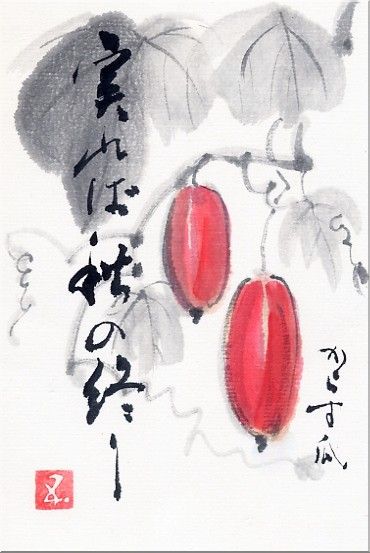 実れば秋の終り
からす瓜